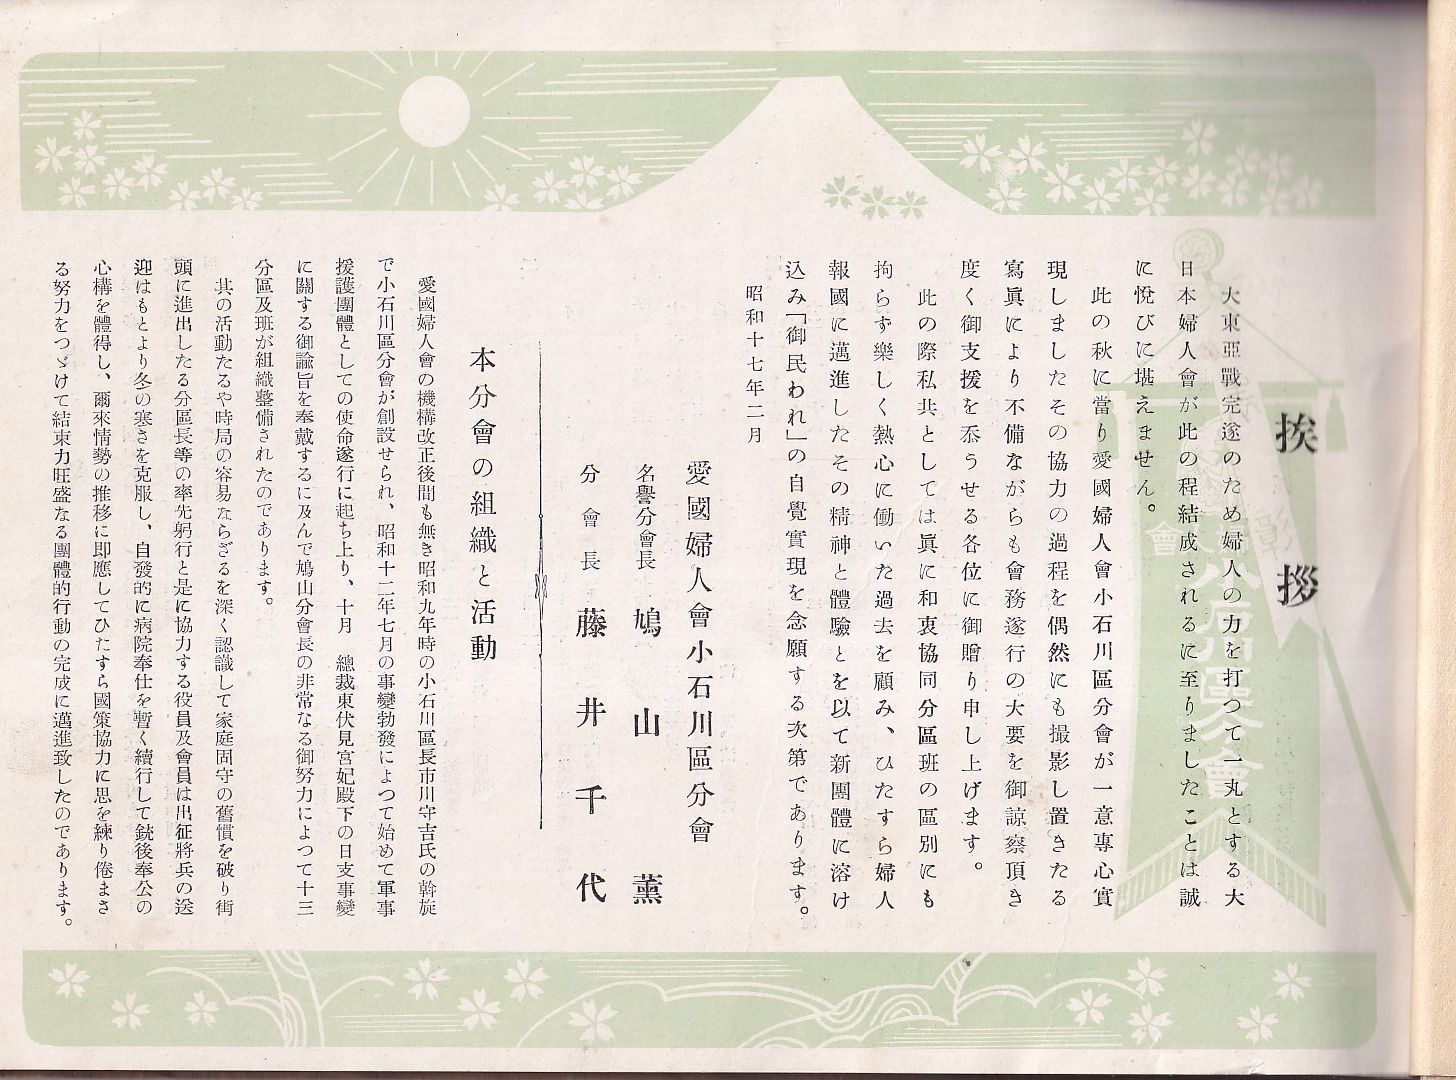 挨拶
大東亞戰完遂のため婦人の力を打つて一丸とする大
日本婦人會が此の程結成されるに至りましたことは誠
に悅びに堪えません。
此の秋に當り愛國婦人會小石川區分會が一意專心實
現しましたその協力の過程を偶然にも撮影し置きたる
寫眞により不備ながらも會務遂行の大要を御諒察頂き
度く御支援を忝うせる各位に御贈り申し上げます。
此の際私共としては眞に和衷協同分區班の區別にも
拘らず樂しく熱心に働いた過去を顧み、ひたすら婦人
報國に邁進したその精神と體驗とを以て新團體に溶け
込み「御民われ」の自覺實現を念願する次第であります。
昭和十七年二月
愛國婦人會小石川區分會
名譽分會長 鳩山薰
分會長 藤井千代
本分會の組織と活動
愛國婦人會の機構改正後間も無き昭和九年時の小石川區長市川守吉氏の斡旋
で小石川區分會が創設せられ、昭和十二年七月の事變勃發によつて始めて軍事
援護團體としての使命遂行に起ち上り、十月 總裁東伏見宮妃殿下の日支事變
に關する御諭旨を奉戴するに及んで鳩山分會長の非常なる御努力によつて十三
分區及班が組織整備されたのであります。
其の活動たるや時局の容易ならざるを深く認識して家庭固守の舊慣を破り街
頭に進出したる分區長等の率先躬行と是に協力する役員及會員は出征將兵の送
迎はもとより冬の寒さを克服し、自發的に病院奉仕を暫く續行して銃後奉公の
心構を體得し、爾來情勢の推移に即應してひたすら國策協力に思を練り倦まざ
る努力をつゞけて結束力旺盛なる團體的行動の完成に邁進致したのであります。
小石川區分會